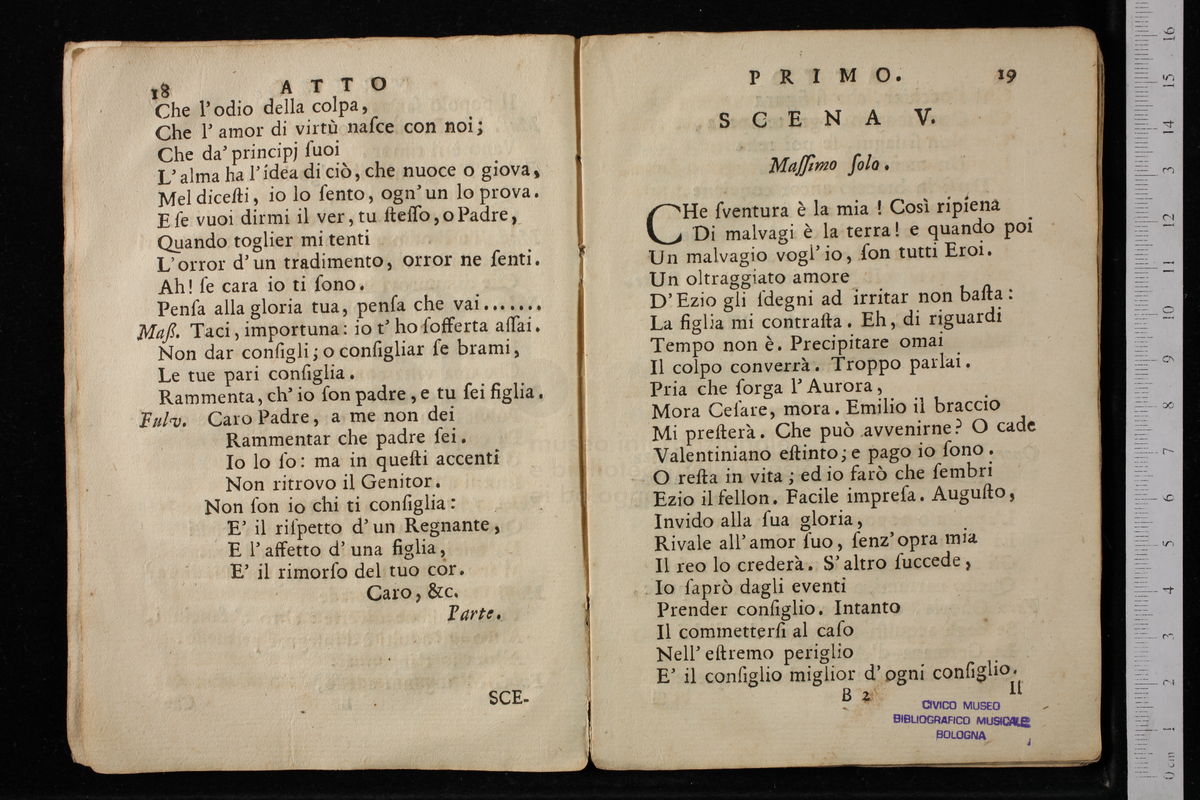 18 ATTO
Che l'odio della colpa,
Che l'amor di virtù naſce con noi;
Che da' principj ſuoi
L'alma ha l'idea di ciò, che nuoce o giova,
Mel diceſti, io lo ſento, ogn'un lo prova.
E ſe vuoi dirmi il ver, tu ſteſſo, o Padre,
Quando toglier mi tenti
L'orror d'un tradimento, orror ne ſenti.
Ah! ſe cara io ti ſono.
Penſa alla gloria tua, penſa che vai.......
Maß. Taci, importuna: io t'ho ſofferta aſſai.
Non dar conſigli; o conſigliar ſe brami,
Le tue pari conſiglia.
Rammenta, ch'io ſon padre, e tu ſei figlia.
Fulv. Caro Padre, a me non dei
Rammentar che padre ſei.
Io lo ſo: ma in queſti accenti
Non ritrovo il Genitor.
Non ſon io chi ti conſiglia:
E' il riſpetto d'un Regnante,
E l'affetto d'una figlia,
E' il rimorſo del tuo cor.
Caro, &c.
Parte.
SCE-
PRIMO. 19
SCENA V.
Maſſimo ſolo.
CHe ſventura è la mia! Così ripiena
Di malvagi è la terra! e quando poi
Un malvagio vogl'io, ſon tutti Eroi.
Un oltraggiato amore
D'Ezio gli ſdegni ad irritar non baſta:
La figlia mi contraſta. Eh, di riguardi
Tempo non è. Precipitare omai
Il colpo converrà. Troppo parlai.
Pria che ſorga l'Aurora,
Mora Ceſare, mora. Emilio il braccio
Mi preſterà. Che può avvenirne? O cade
Valentiniano eſtinto; e pago io ſono.
O reſta in vita; ed io farò che ſembri
Ezio il fellon. Facile impreſa. Auguſto,
Invido alla ſua gloria,
Rivale all'amor ſuo, ſenz'opra mia
Il reo lo crederà. S'altro ſuccede,
Io ſaprò dagli eventi
Prender conſiglio. Intanto
Il commetterſi al caſo
Nell'eſtremo periglio
E' il conſiglio miglior d'ogni conſiglio.
B 2 Il
CIVICO MUSEO
BIBLIOGRAFICO MUSICALE
BOLOGNA
0 cm 1 2 3 4 5 6 7 8 9 10 11 12 13 14 15 16